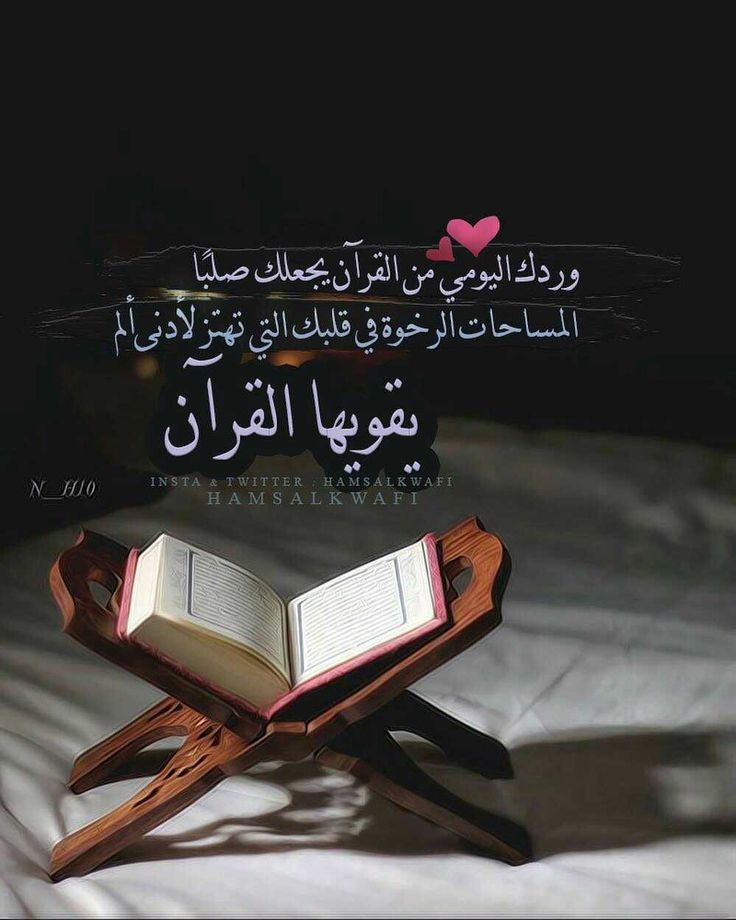 وردك اليومي من القرآن يجعلك صلبًا
المساحات الرخوة في قلبك التي تهتز لأدنى ألم
يقويها القرآن
INSTA & TWITTER : HAMSALKWAFI
HAMSALKWAFI
N_H10